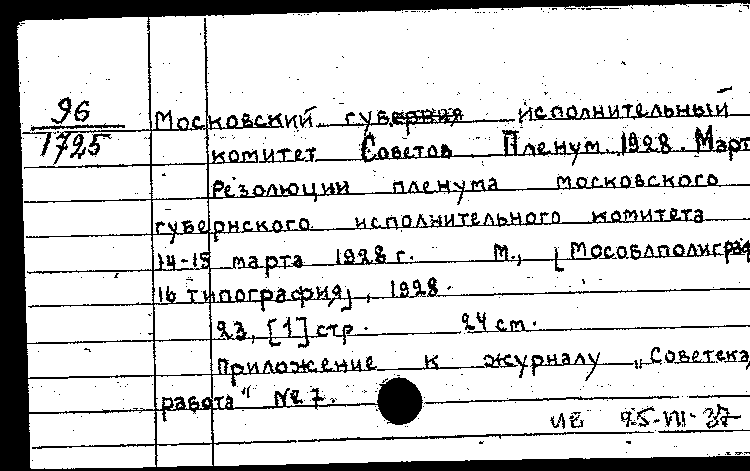 96
1725
Московский губерния исполнительный
комитет Советов Пленум 1928. Март
Резолюции пленума московского
губернского исполнительного комитета
14-15 марта 1928 г. М., [Мособлполиграф
16 типография], 1928.
23, [1] стр. 24 cm.
Приложение к журналу „Советская
работа" № 7.
25-VII-37